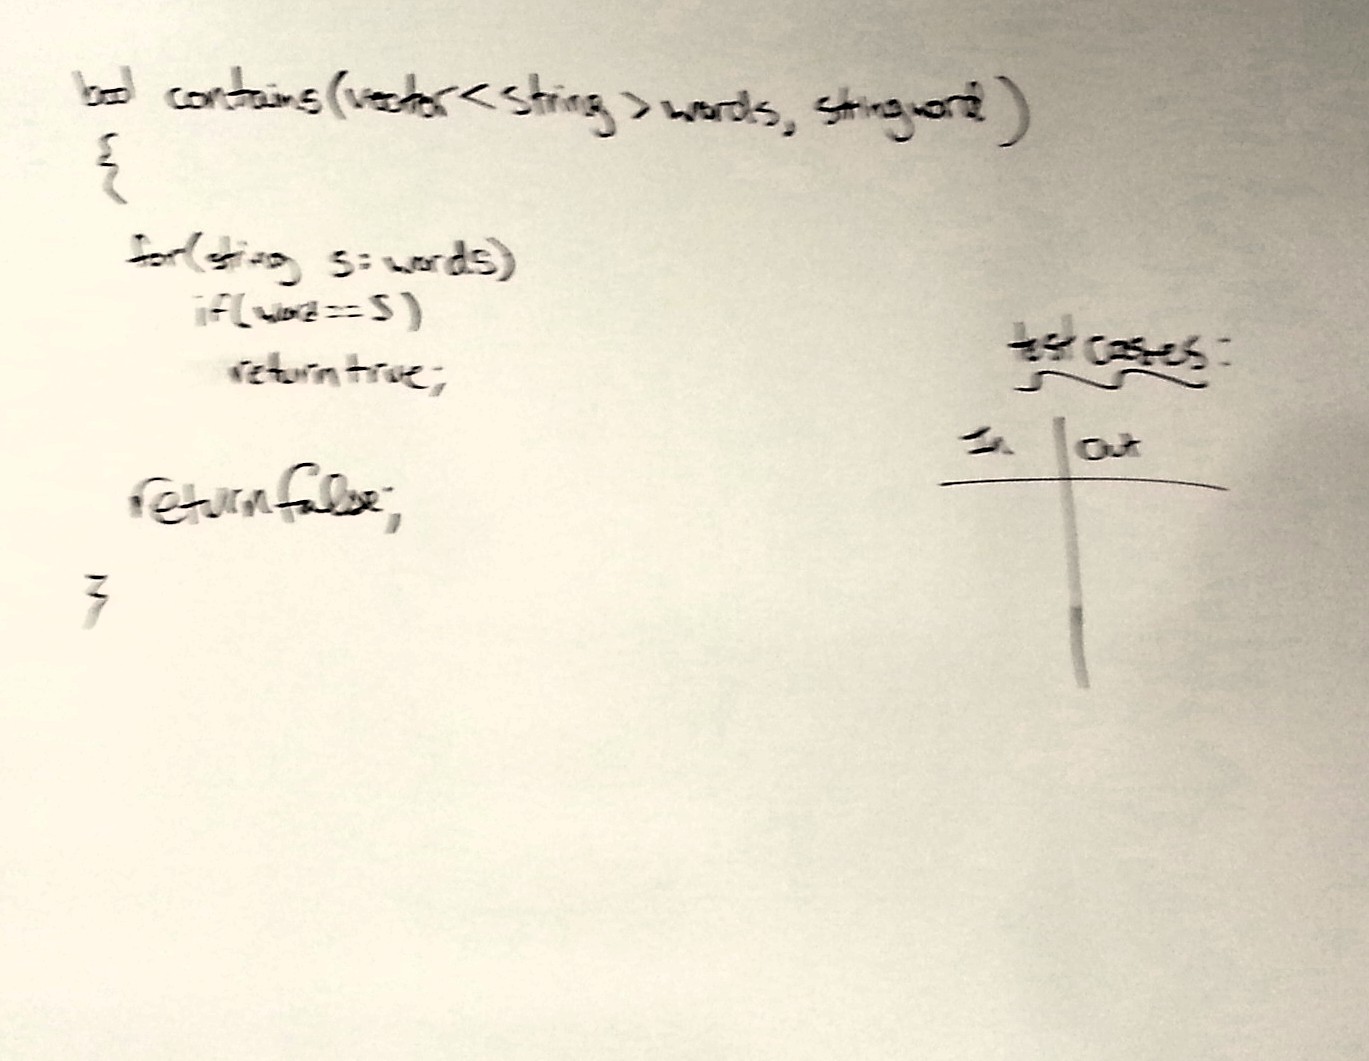 bool contains(vector<string> words, string word)
{
for(string s: words)
if(word==s)
return true;
return false;
}
test cases:
In Out